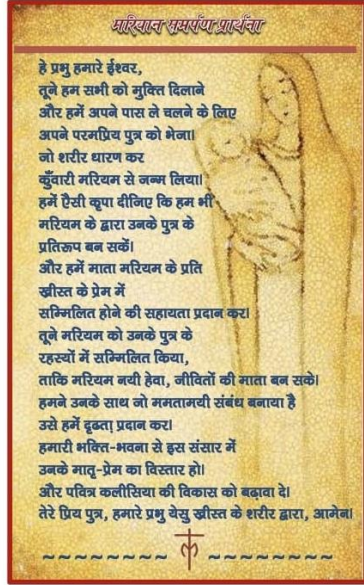 मरियान समर्पण प्रार्थना
हे प्रभु हमारे ईश्वर,
तूने हम सभी को मुक्ति दिलाने
और हमें अपने पास ले चलने के लिए
अपने परमप्रिय पुत्र को भेजा।
जो शरीर धारण कर
कुँवारी मरियम से जन्म लिया।
हमें ऐसी कृपा दीजिए कि हम भी
मरियम के द्वारा उनके पुत्र के
प्रतिरूप बन सकें।
और हमें माता मरियम के प्रति
ख्रीस्त के प्रेम में
सम्मिलित होने की सहायता प्रदान कर।
तूने मरियम को उनके पुत्र के
रहस्यों में सम्मिलित किया,
ताकि मरियम नयी हेवा, जीवितों की माता बन सके।
हमने उनके साथ जो ममतामयी संबंध बनाया है
उसे हमें दृढता प्रदान कर।
हमारी भक्ति-भवना से इस संसार में
उनके मातृ-प्रेम का विस्तार हो।
और पवित्र कलीसिया की विकास को बढ़ावा दे।
तेरे प्रिय पुत्र, हमारे प्रभु येसु ख्रीस्त के शरीर द्वारा, आमेन।